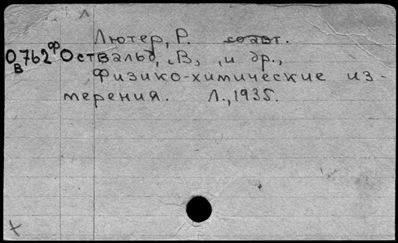 Лютер, Р. соавт.
О762ф Оствальд, В., и др.,
В
Физико-химические из-
мерения. Л., 1935.